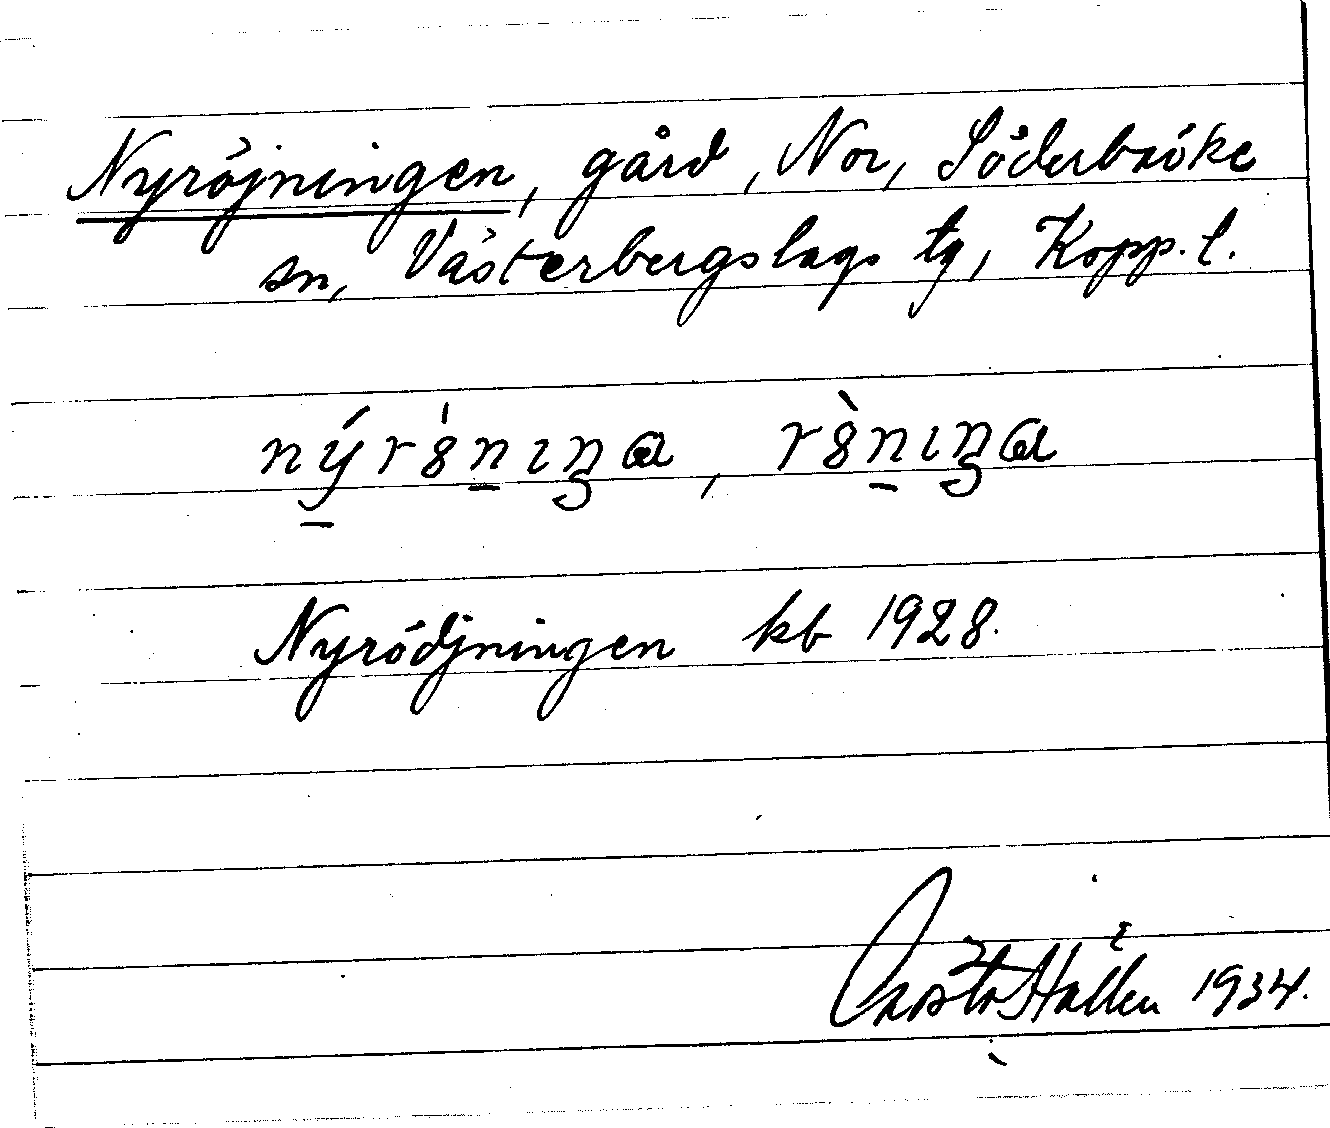 Nyröjningen, gård, Nor, Söderbärke
sn, Västerbergslags tg, Kopp. l.
nýrȣ́nıŋa, rȣ̀nıŋa
Nyrödjningen kb 1928.
Hallén 1934.